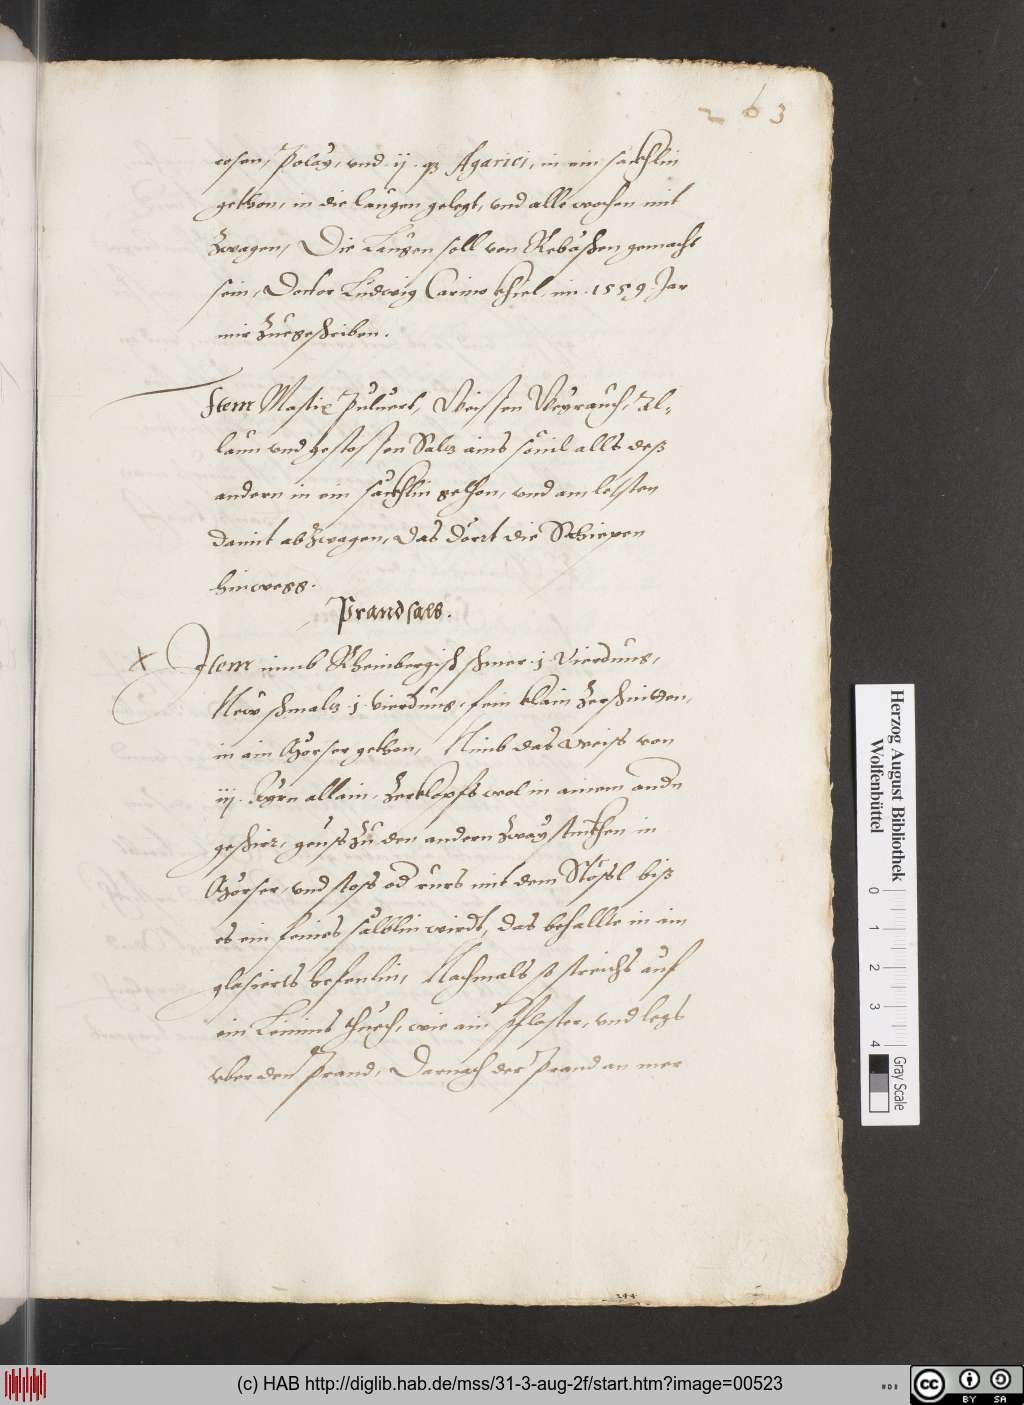 263
rosen, Polay, vnd ij. qz Agarici, in ein säckhlin
gethon, in die laugen gelegt, vnd alle wochen mit
Zwagen, Die Laugen soll von Rebäschen gemacht
sein, Doctor Ludwig im 1559 Jar
mir Zuegeschriben.
Item Mastix Puluert, Weissen Weyrauch, Al-
laun vnd gestossen Saltz ains souil allß deß
andern in ein säckhlin gethon, vnd am letsten
damit abZwagen, das dört die Schiepen
hinwegg.
Prandsalb.
x Item nimb Rheinbergisch schmer .j. Vierdung,
New schmaltz .j. vierdung, fein klain Zerschniden,
in ain Mörser gethon, Nimb das weiss von
iij. Ayrn allain, Zerklopfs wol in ainem andn
geschirr, geuss Zu den andern Zway stuckhen in
Mörser, vnd stoss od rürs mit dem Stössl biß
es ein feines sälblin wirdt, das behallte in aim
glasierts hefenlin, Nachmals so streichs auf
ein Leinins thuech, wie ain Pflaster, vnd legs
vber den Prand, Darnach der Prand an mer
Herzog August Bibliothek
Wolfenbüttel
0 1 2 3 4
Gray Scale
(c) HAB http://diglib.hab.de/mss/31-3-aug-2f/start.htm?image=00523
cc BY SA